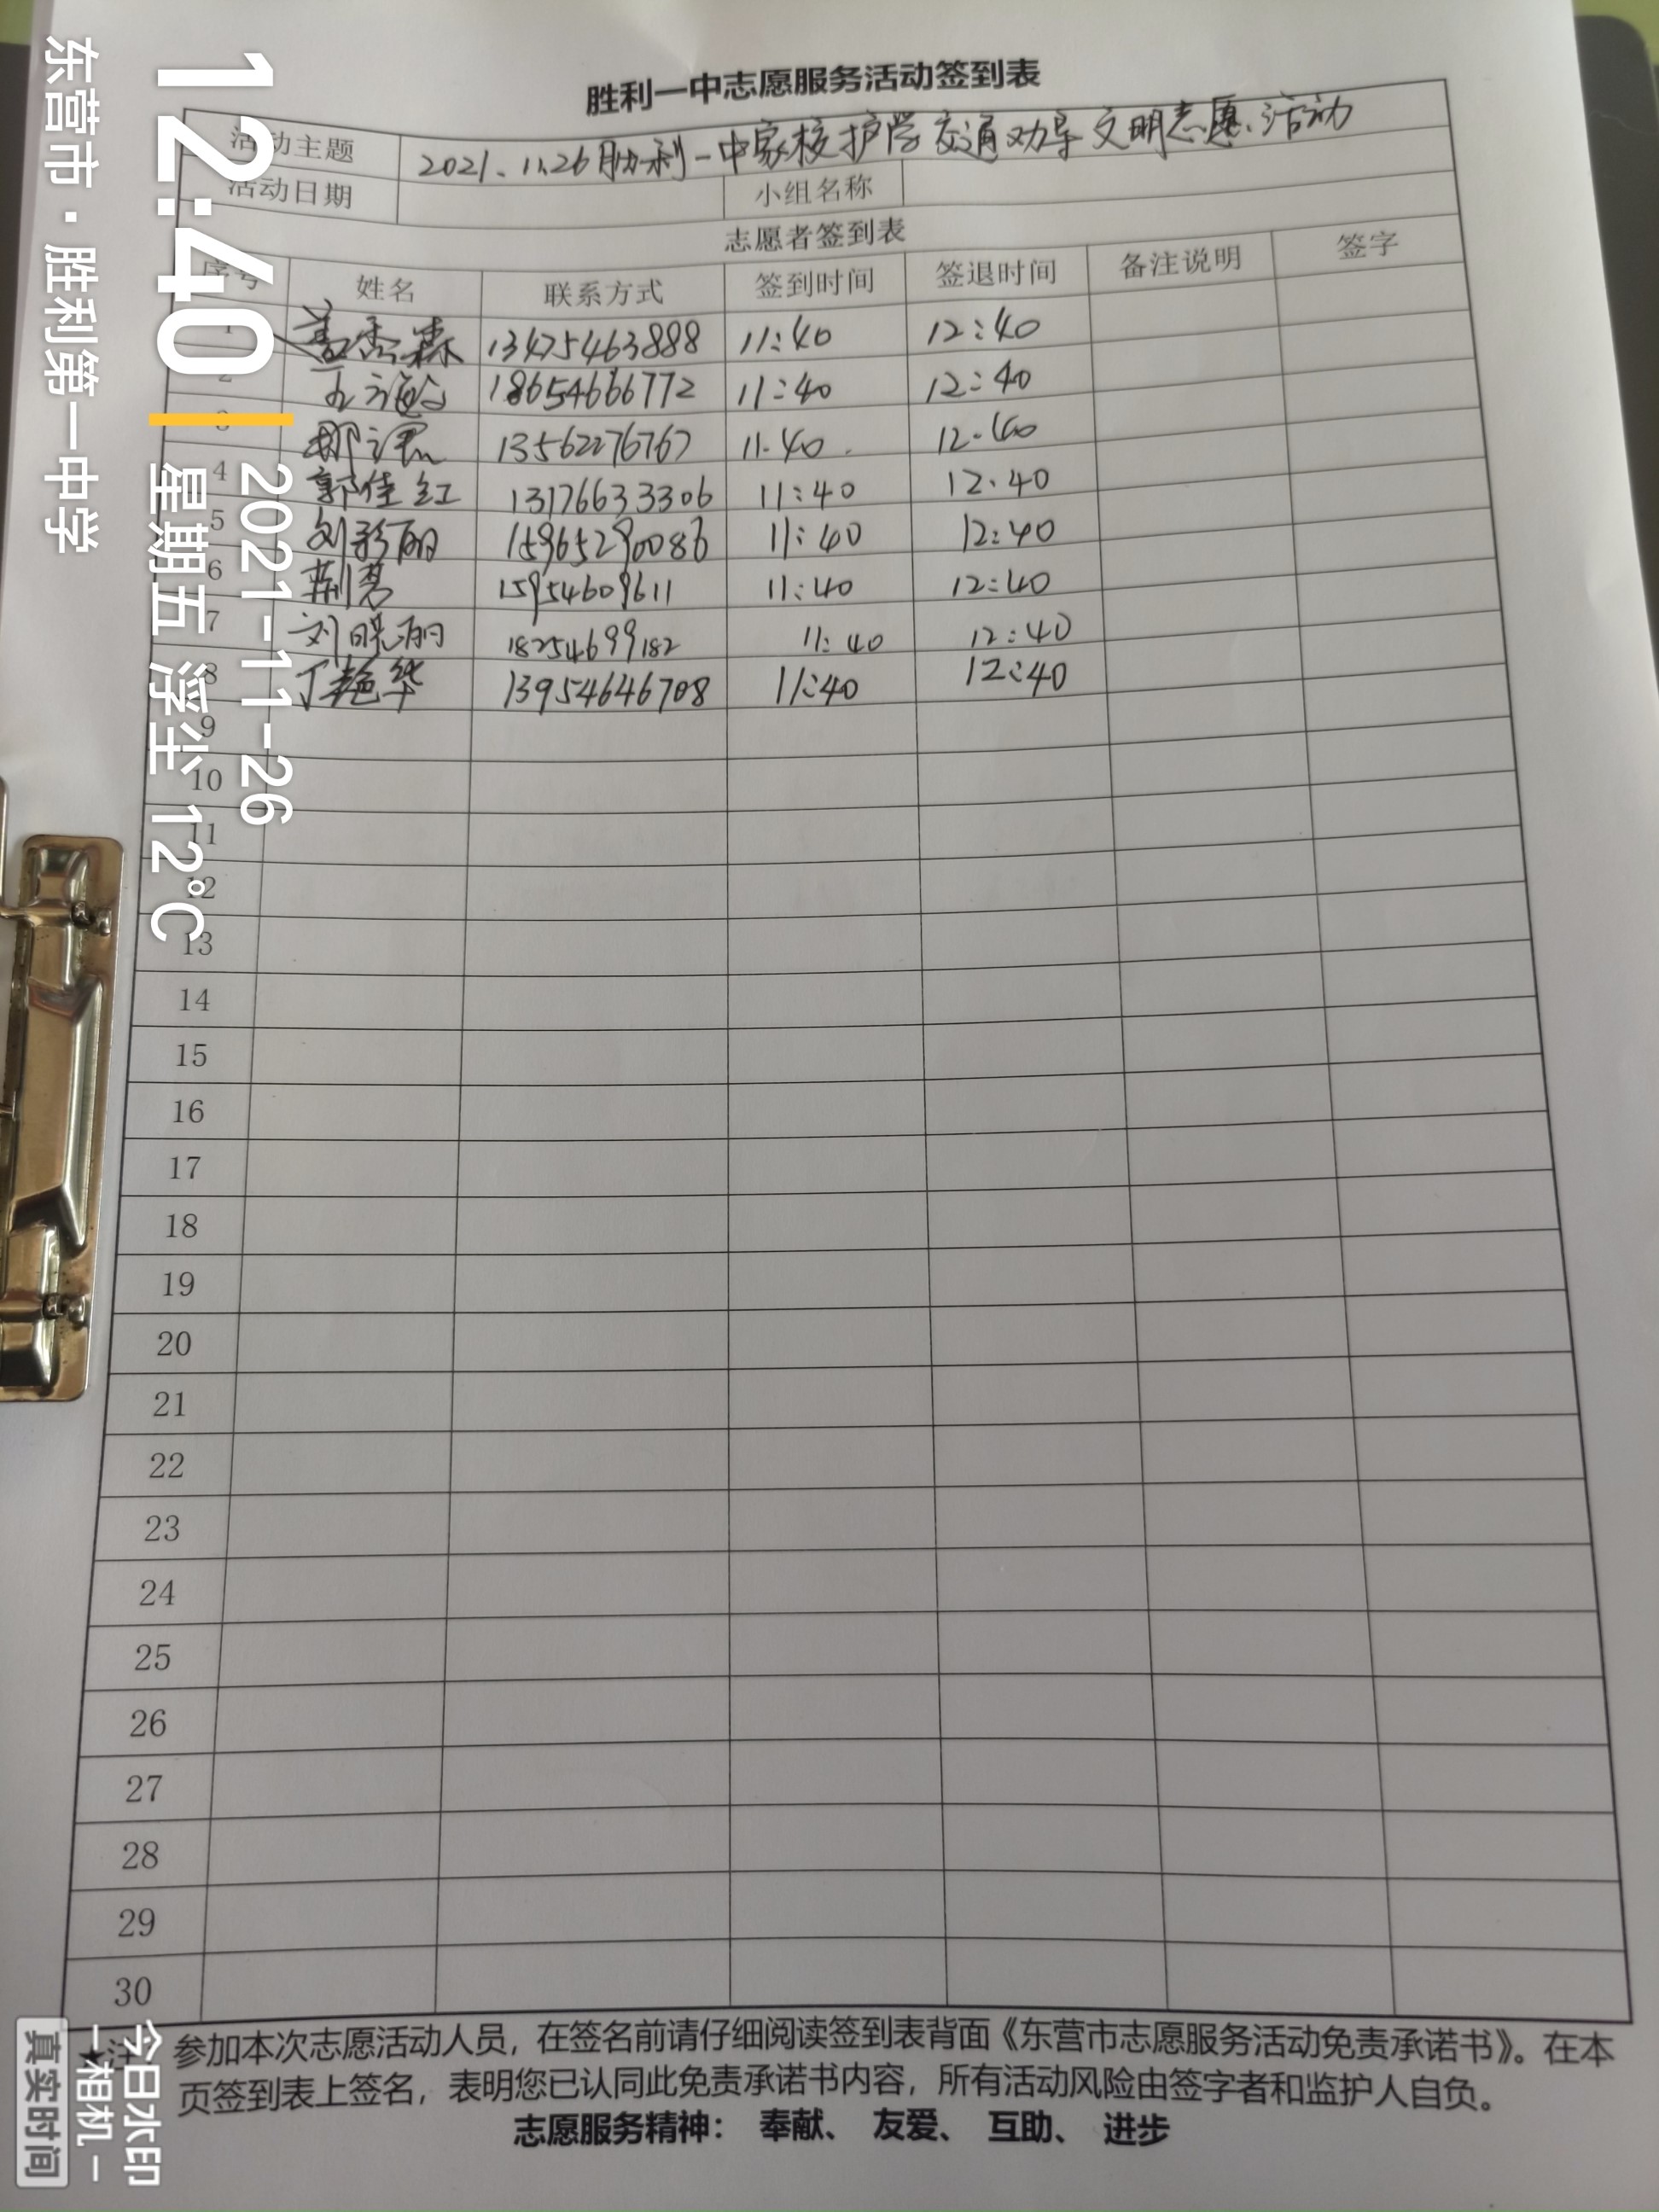 胜利一中志愿服务活动签到表
活动主题 2021.11.26胜利一中家校护学交通劝导文明志愿活动
活动日期 小组名称
志愿者签到表
序号 姓名 联系方式 签到时间 签退时间 备注说明 签字
1 13475463888 11:40 12:40
2 18654666772 11:40 12:40
3 13562276767 11.40. 12.40
4 郭佳红 13176633306 11:40 12.40
5 刘彩丽 15965290086 11:40 12:40
6 荆慧 15954609611 11:40 12:40
7 刘晓丽 18254699182 11:40 12:40
8 丁艳华 13954646708 11:40 12:40
9
10
11
12
13
14
15
16
17
18
19
20
21
22
23
24
25
26
27
28
29
30
★注：参加本次志愿活动人员，在签名前请仔细阅读签到表背面《东营市志愿服务活动免责承诺书》。在本
页签到表上签名，表明您已认同此免责承诺书内容，所有活动风险由签字者和监护人自负。
志愿服务精神： 奉献、 友爱、 互助、 进步
12:40
2021-11-26
星期五 浮尘 12℃
东营市·胜利第一中学
今日水印
-相机-
真实时间